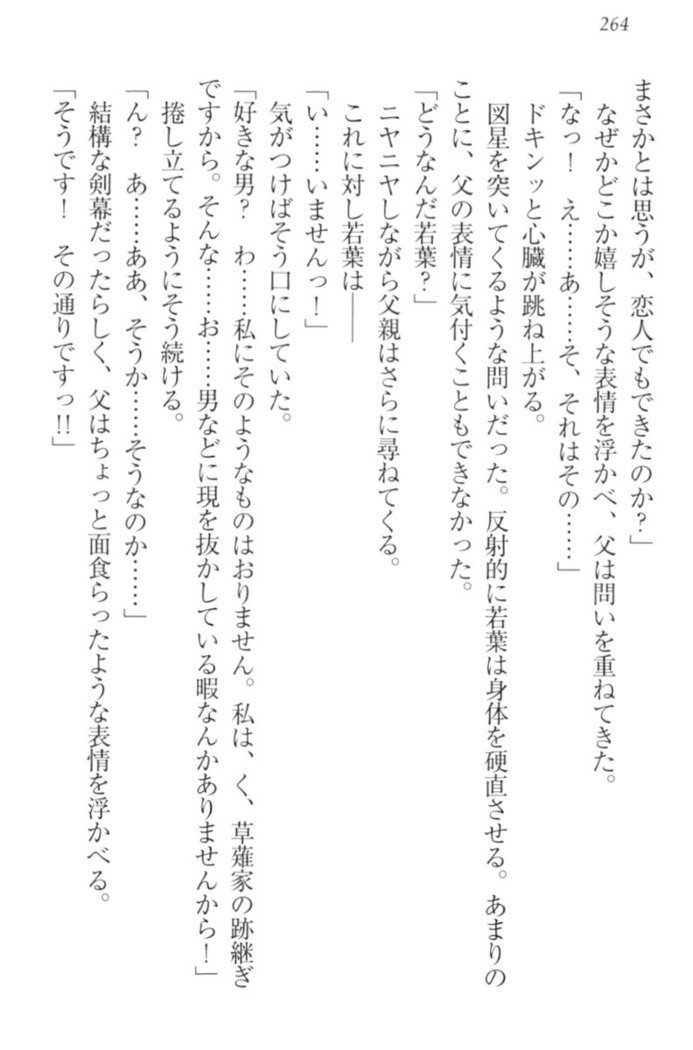 264
まさかとは思うが、恋人でもできたのか？」
なぜかどこか嬉しそうな表情を浮かべ、父は問いを重ねてきた。
「なっ！　え……あ……そ、それはその……」
ドキンッと心臓が跳ね上がる。
図星を突いてくるような問いだった。反射的に若葉は身体を硬直させる。あまりの
ことに、父の表情に気付くこともできなかった。
「どうなんだ若葉？」
ニヤニヤしながら父親はさらに尋ねてくる。
これに対し若葉は――
「い……いませんっ！」
気がつけばそう口にしていた。
「好きな男？　わ……私にそのようなものはおりません。私は、く、草薙家の跡継ぎ
ですから。そんな……お……男などに現を抜かしている暇なんかありませんから！」
捲し立てるようにそう続ける。
「ん？　あ……ああ、そうか……そうなのか……」
結構な剣幕だったらしく、父はちょっと面食らったような表情を浮かべる。
「そうです！　その通りですっ!!」